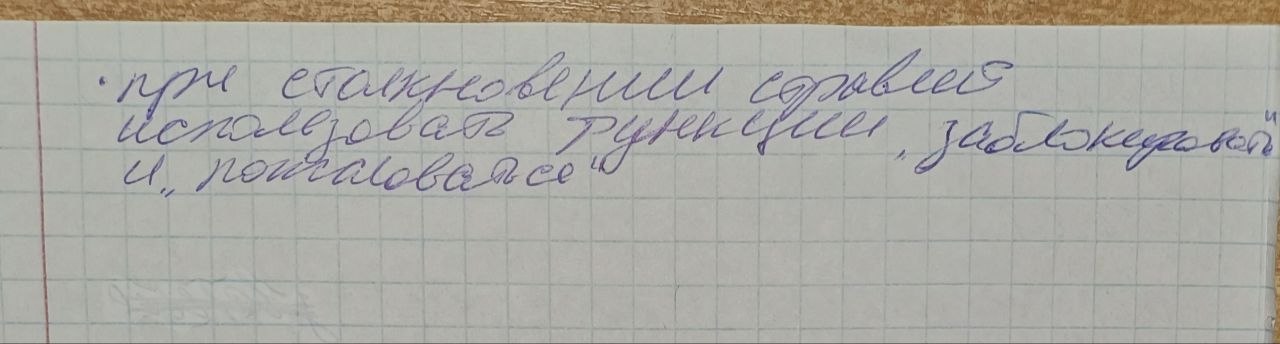 · при столкновении с травлей
использовать функции „заблокировать"
и „пожаловаться"